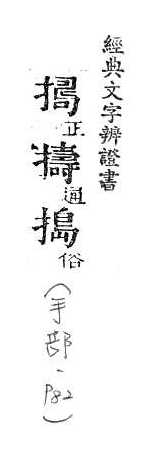 經典文字辨證書
正擣通搗俗
(手部、P82)